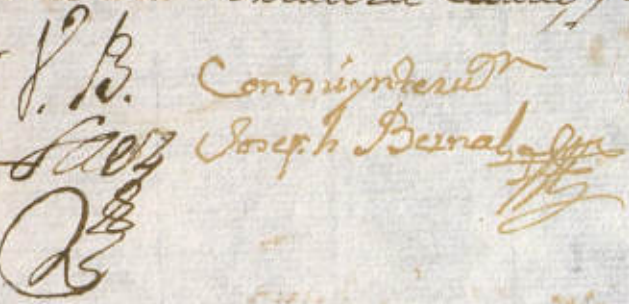 V. B.
Saez
Con mi ynterv.on
Joseph Bernal